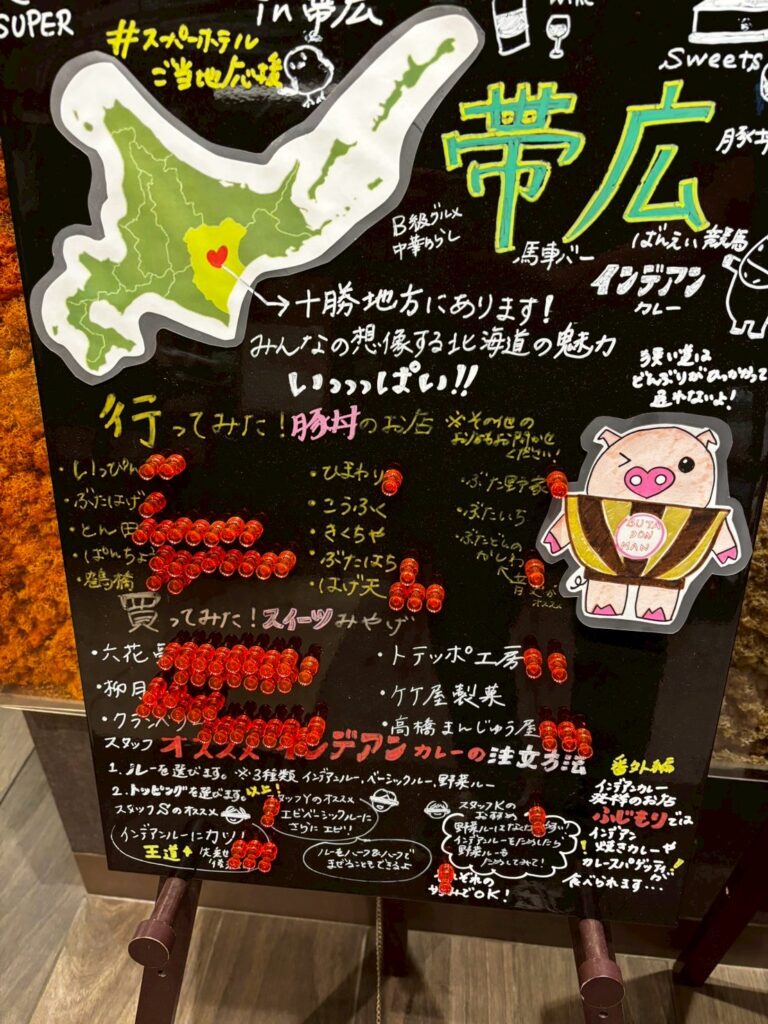 SUPER
in 帯広
#スーパーホテル
ご当地応援
Sweets
帯広
豚丼
B級グルメ
中華ちらし
馬車バー
ばんえい競馬
インデアン
カレー
→十勝地方にあります!
みんなの想像する北海道の魅力
いっっっぱい!!
狭い道は
どんぶりがひっかかって
通れないよ!
行ってみた!豚丼のお店
※その他の
・いっぴん
・ぶたはげ
・とん田
・ぱんちょう
・鶴橋
・ひまわり
・こうふく
・きくちや
・ぶたはち
・はげ天
・ぶた野家
・ぶたいち
・ぶたどんの
かしわ
BUTA
DON
MAN
買ってみた!スイーツみやげ
・六花亭
・柳月
・クランベリー
・トテッポ工房
・竹屋製菓
・高橋まんじゅう屋
スタッフオススメ インデアンカレーの注文方法
1. ルーを選びます。※3種類 インデアンルー、ベーシックルー、野菜ルー
2. トッピングを選びます。以上!
スタッフSのオススメ
インデアンルーにカツ!
王道↑
スタッフYのオススメ
エビベーシックルーに
さらにエビ!
ルーもハーフ&ハーフで
まぜることもできるよ
スタッフKの
お勧め
インデアンルーをためしたら
野菜ルーも
ためしてみて!
でOK!
番外編
インデアンカレー
発祥のお店
ふじもりでは
インデアン
焼きカレーや
カレースパゲッティが
食べられます…